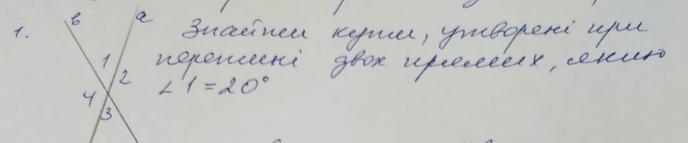 1. в a Знайти кути, утворені при
1 2 перетині двох прямих, якщо
4 3 ∠1=20°